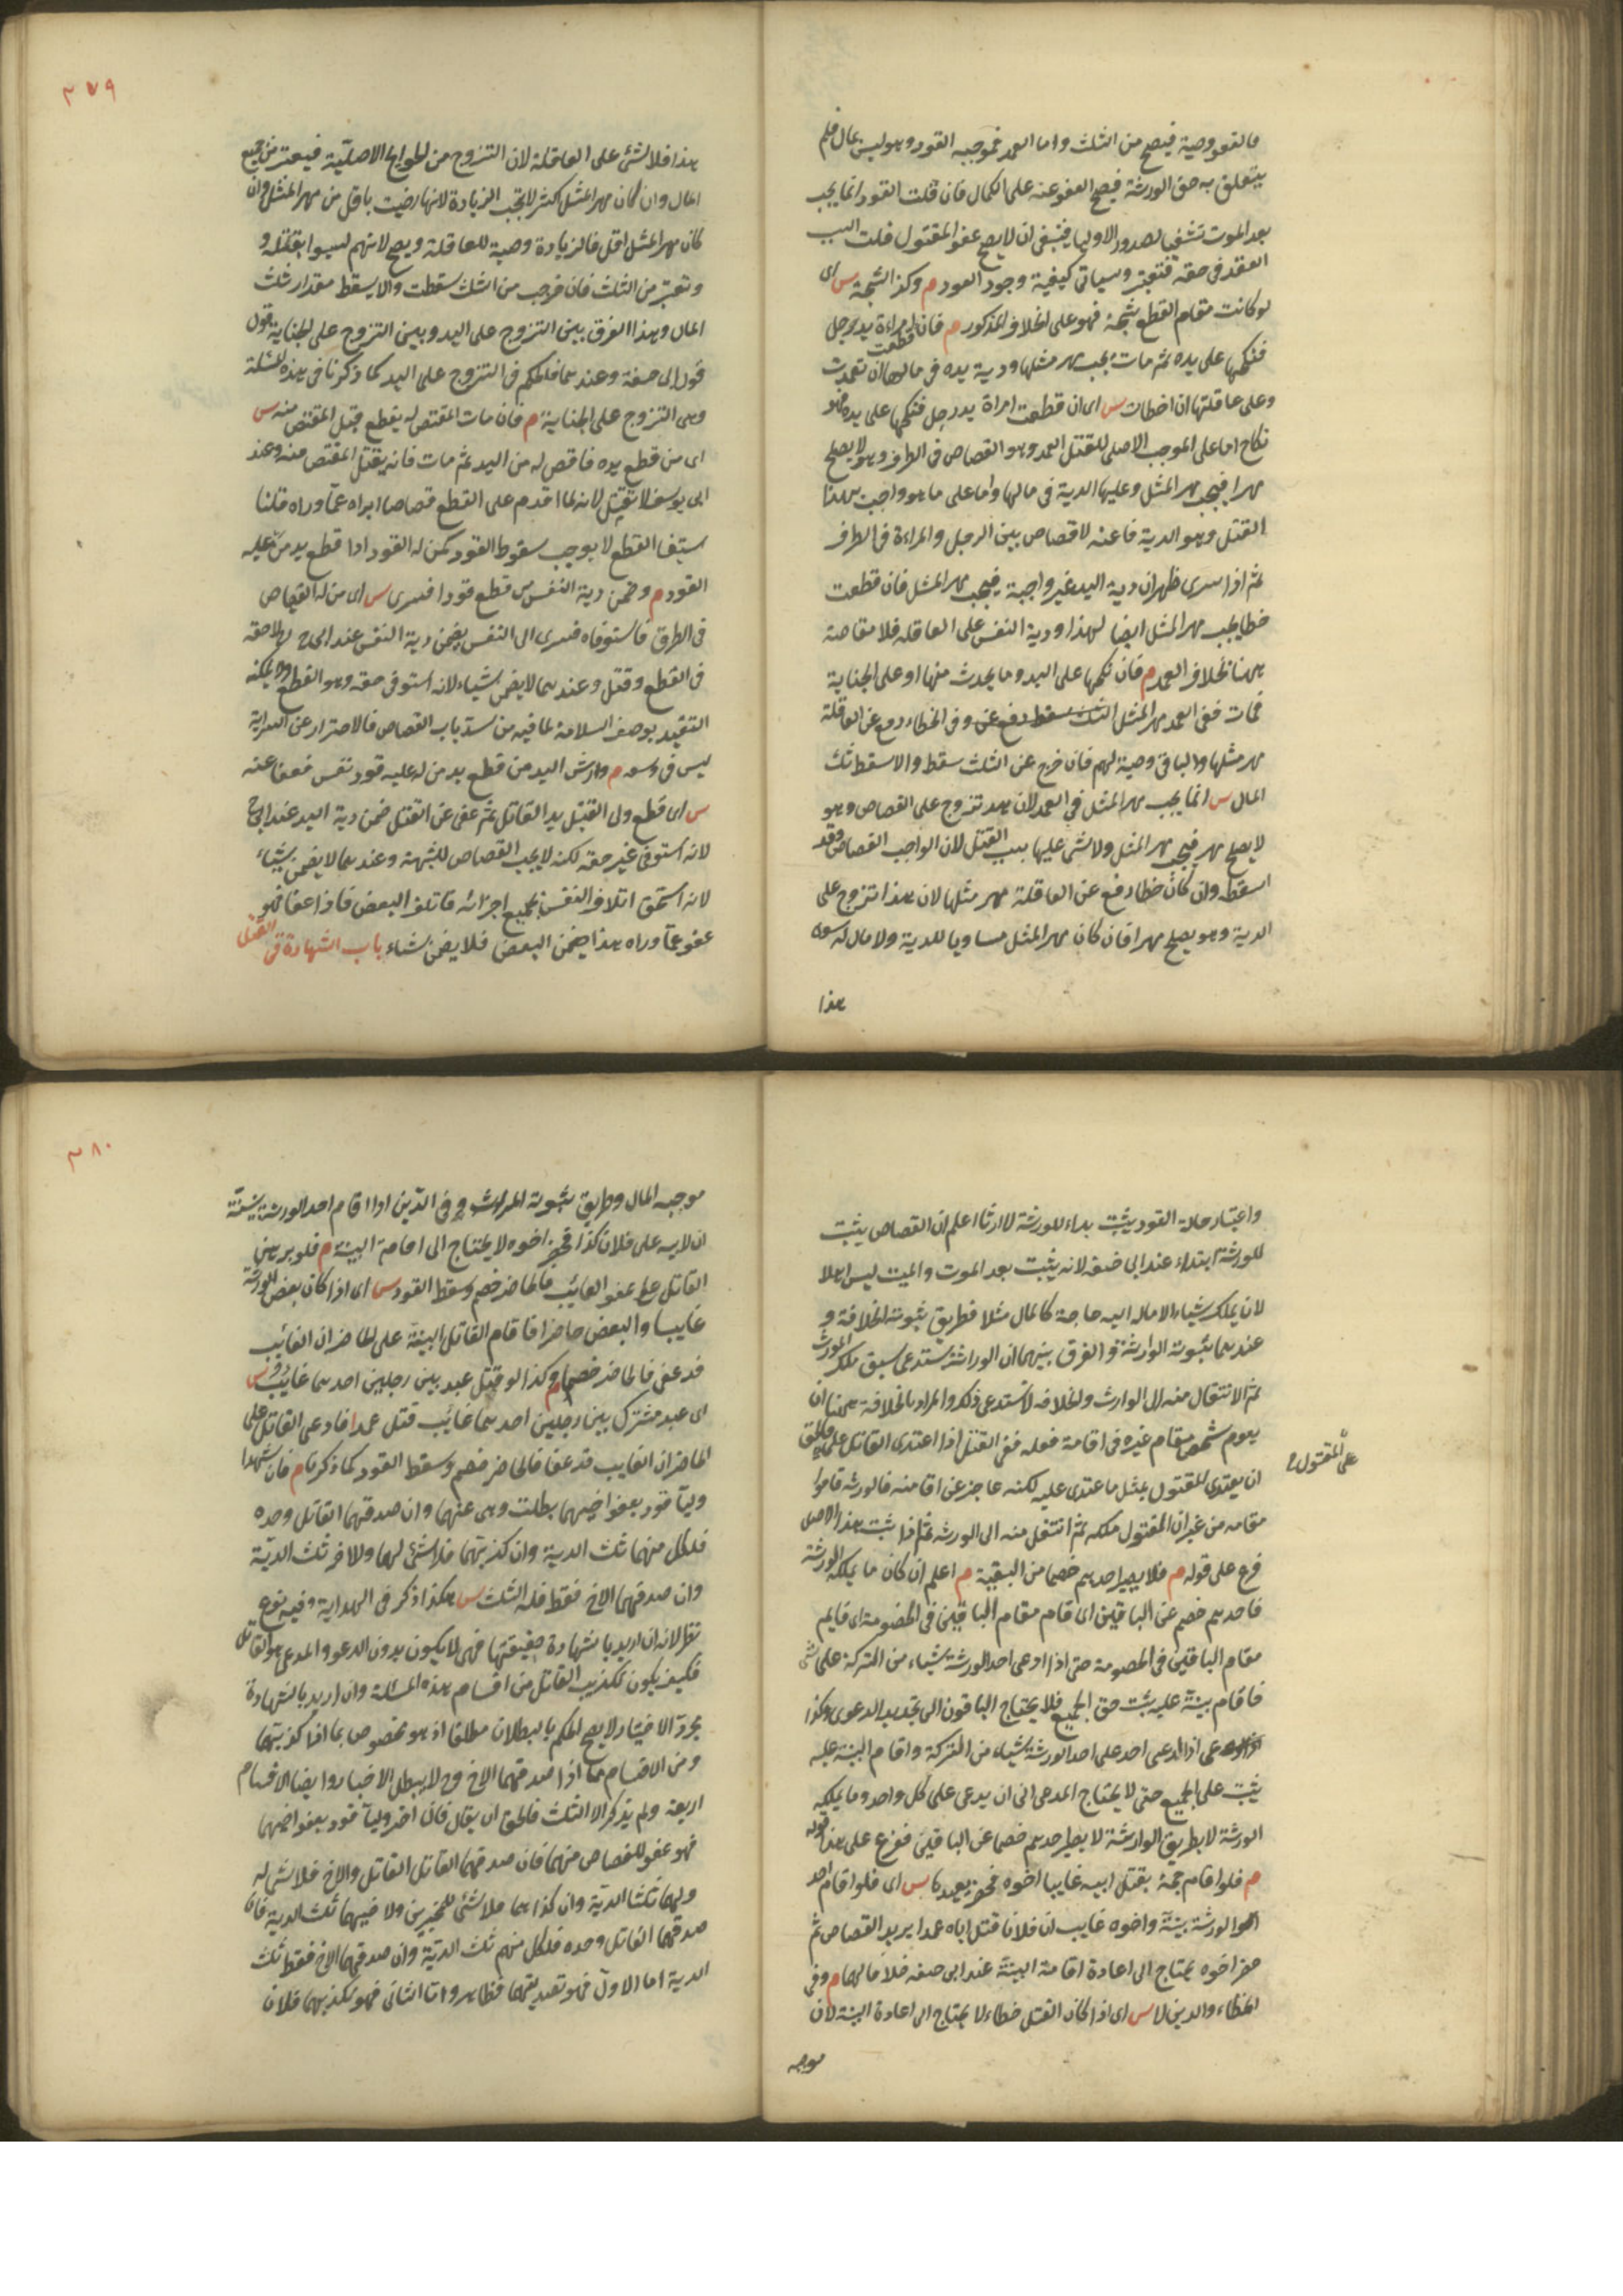 فالعفو وصية فيصح من الثلث واما العمد فموجبه القود وهو ليس بمال فلم
يتعلق به حق الورثة فيصح العفو عنه على الكمال فان قلت القود انما يجب
بعد الموت تشفيا لصدور الاوليا فينبغى ان لا يصح عفو المقتول قلت السبب
انعقد فى حقه فتعتبر وسياتى كيفية وجود القود م وكذا الشجة س اى
لو كانت مقام القطع شجة فهو على الخلاف المذكور م فان قطعت امراءة يد رجل
فنكحها على يده ثم مات يجب مهر مثلها ودية يده فى مالها ان تعمدت
وعلى عاقلتها ان اخطات س اى ان قطعت امراة يد رجل فنكحها على يده فهو
نكاح اما على الموجب الاصلى للقتل العمد وهو القصاص فى الطرف وهو لا يصلح
مهرا فيجب مهر المثل وعليها الدية فى مالها واما على ما هو واجب بهذا
القتل وهو الدية فاعنه لا قصاص بين الرجل والمراءة فى الطرف
ثم اذا سرى ظهر ان دية اليد غير واجبة فيجب مهر المثل فان قطعت
خطا يجب مهر المثل ايضا لهذا ودية النفس على العاقله فلا مقاصة
هنا بخلاف العمد م فان نكحها على اليد وما يحدث منها او على الجناية
فمات ففى العمد مهر المثل وفى الخطاء رفع عن العاقلة
مهر مثلها والباقى وصية لهم فان خرج عن الثلث سقط والا سقط ثلث
المال س انما يجب مهر المثل فى العمد لان هذ تزوج على القصاص وهو
لا يصلح مهر فيجب مهر المثل ولا شى عليها بسبب القتل لان الواجب القصاص وقد
اسقط وان كان خطا رفع عن العاقلة مهر مثلها لان هذا تزوج على
الدية وهو يصلح مهرا فان كان مهر المثل مساويا للدية ولا مال له سوى
هذا
٣٧٩
هذا فلا شئ على العاقلة لان التزوج من الحوايج الاصلية فيعتبر من جميع
المال وان كان مهر المثل اكثر لا تجب الزيادة لانها رضيت باقل من مهر المثل وان
كان مهر المثل اقل فالزيادة وصية للعاقلة ويصح لانهم ليسوا بقتلة و
وتعتبر من الثلث فان خرجت من الثلث سقطت والا يسقط مقدار ثلث
المال وهذا الفرق بين التزوج على اليد وبين التزوج على الجناية قول
قول ابى حنيفة وعندهما فالحكم فى التزوج على اليد كما ذكرنا فى هذه المسئلة
وهى التزوج على الجناية م فان مات المقتص له يقطع قبل المقتص منه س
اى من قطع يده فاقتص له من اليد ثم مات فانه يقتل المقتص منه وعند
ابى يوسف لا يقتل لانه لما اقدم على القطع قصاصا ابراه عما وراه قلنا
ستيفا القطع لا يوجب سقوط القود كمن له القود اذا قطع يد من عليه
القود م وضمن دية النفس من قطع قودا فسرى س اى من له القصاص
فى الطرف فاستوفاه فسرى الى النفس يضمن دية النفس عند ابى ح لا حقه
فى القطع وقتل وعندهما لا يضمن شياء لانه استوفى حقه وهو القطع ولا يمكنه
التقييد بوصف السلامة لما فيه من سد باب القصاص فالاحتراز عن السراية
ليس فى وسعه م وارش اليد من قطع يد من له عليه قود نفس فعفا عنه
س اى قطع ولى القتيل يد القاتل ثم عفى عن القتل ضمن دية اليد عند ابى ح
لانه استوفى غير حقه لكنه لا يجب القصاص للشبهة وعندهما لا يضمن شياء
لانه استحق اتلاف النفس بجميع اجزائه فاتلف البعض فاذا عفا فهو
عفو عما وراه هذا ضمن البعض فلا يضمن شاء باب الشهادة فى القتل
واعتبار حالة القود يثبت بداء للورثة لا ارثا اعلم ان القصاص يثبت
للورثة ابتداء عند ابى حنيفه لانه يثبت بعد الموت والميت ليس اهلا
لان يملك شياء الا ماله اليه حاجة كالمال مثلا فطريق ثبوته الخلافة و
عندهما ثبوته الوارثة والفرق بينهما ان الوراثة تستدعى سبق ملك المورث
ثم الانتقال منه الى الوارث والخلافه لا تستدعى ذلك والمراد بالخلافة هنا ان
يقوم شخص مقام غيره فى اقامة فعله ففى القتل اذا اعتدى القاتل على فالحق
على المقتول
ان يعتدى المقتول بمثل ما اعتدى عليه لكنه عاجز عن اقامته فالورثه قاموا
مقامه من غير ان المقتول ملكه ثم انتقل منه الى الورثه ثم اذا ثبت هذا الاصل
فرع على قوله م فلا يصير احدهم خصما من البقية م اعلم ان كان ما يملكه الورثة
فاحدهم خصم عن الباقين اى قام مقام الباقين فى الخصومة اى قايم
مقام الباقين فى الخصومة حتى اذا ادعى احد الورثة شياء من التركة على شى
فاقام بينة عليه يثبت حق الجميع فلا يحتاج الباقون الى تجديد الدعوى وكذا
اذا ادعى احد على احد الورثة شياء من التركة واقام البينة عليه
يثبت على الجميع حتى لا يحتاج المدعى الى ان يدعى على كل واحد وما يملكه
الورثة لا بطريق الوارثة لا يصير احدهم خصما عن الباقين ففرع على هذا قوله
م فلو اقام حجة بقتل ابيه غايبا اخوه فحضر يعيدها س اى فلو اقام احد
الورثة بينة واخوه غايب ان فلانا قتل اباه عمدا يريد القصاص ثم
حضر اخوه يحتاج الى اعادة اقامة البينة عند ابى حنيفه خلافا لهما م وفى
الخطاء والدين لا س اى اذا كان القتل خطاء لا يحتاج الى اعادة البينة لان
موجبه
٣٨٠
موجبه المال وطريق ثبوته الميراث وفى الدين اذا اقام احد الورثة بينة
ان لابيه على فلان كذا فحضر اخوه لا يحتاج الى اقامة البينة م فلو برهن
القاتل على عفو الغائب فالحاضر خصم وسقط القود س اى اذا كان بعض الورثة
غايبا والبعض حاضرا فاقام القاتل البينة على الحاضر ان الغائب
قد عفى فالحاضر خصم م وكذا لو قتل عبد بين رجلين احدهما غائب س
اى عبد مشترك بين رجلين احدهما غائب قتل عمدا فادعى القاتل على
الحاضر ان الغايب قد عفا فالحاضر خصم وسقط القود كما ذكرنا م فان شهدا
وليا قود بعفو اخيهما بطلت وهى عنهما وان صدقهما القاتل وحده
فلكل منهما ثلث الدية وان كذبهما فلا شئ لهما وللاخر ثلث الدية
وان صدقهما الاخ فقط فله الثلث س هكذا ذكر فى الهداية وفيه نوع
نظر لانه ان اريد بالشهادة حقيقتها فهى لا يكون بدون الدعو والمدعى هو القاتل
فكيف يكون تكذيب القاتل من اقسام هذه المسئلة وان اريد بالشهادة
مجرد الاخبار لا يصح الحكم بالبطلان مطلقا اذ هو مخصوص بما اذا كذبهما
ومن الاقسام ما اذا صدقهما الاخ وح لا يبطل الاخبار وايضا الاقسام
اربعة ولم يذكر الا الثلث فالحق ان يقال فان اخبر وليا قود بعفو اخيهما
فهو عفو للقصاص منهما فان صدقهما القاتل القاتل والاخ فلا شى له
ولهما ثلثا الدية وان كذباهما فلا شئ للمخبرين ولاخيهما ثلث الدية فان
صدقهما القاتل وحده فلكل منهم ثلث الدية وان صدقهما الاخ فقط ثلث
الدية اما الاول فهو تصديقهما فظاهر واما الثانى فهو تكذيبهما فلان